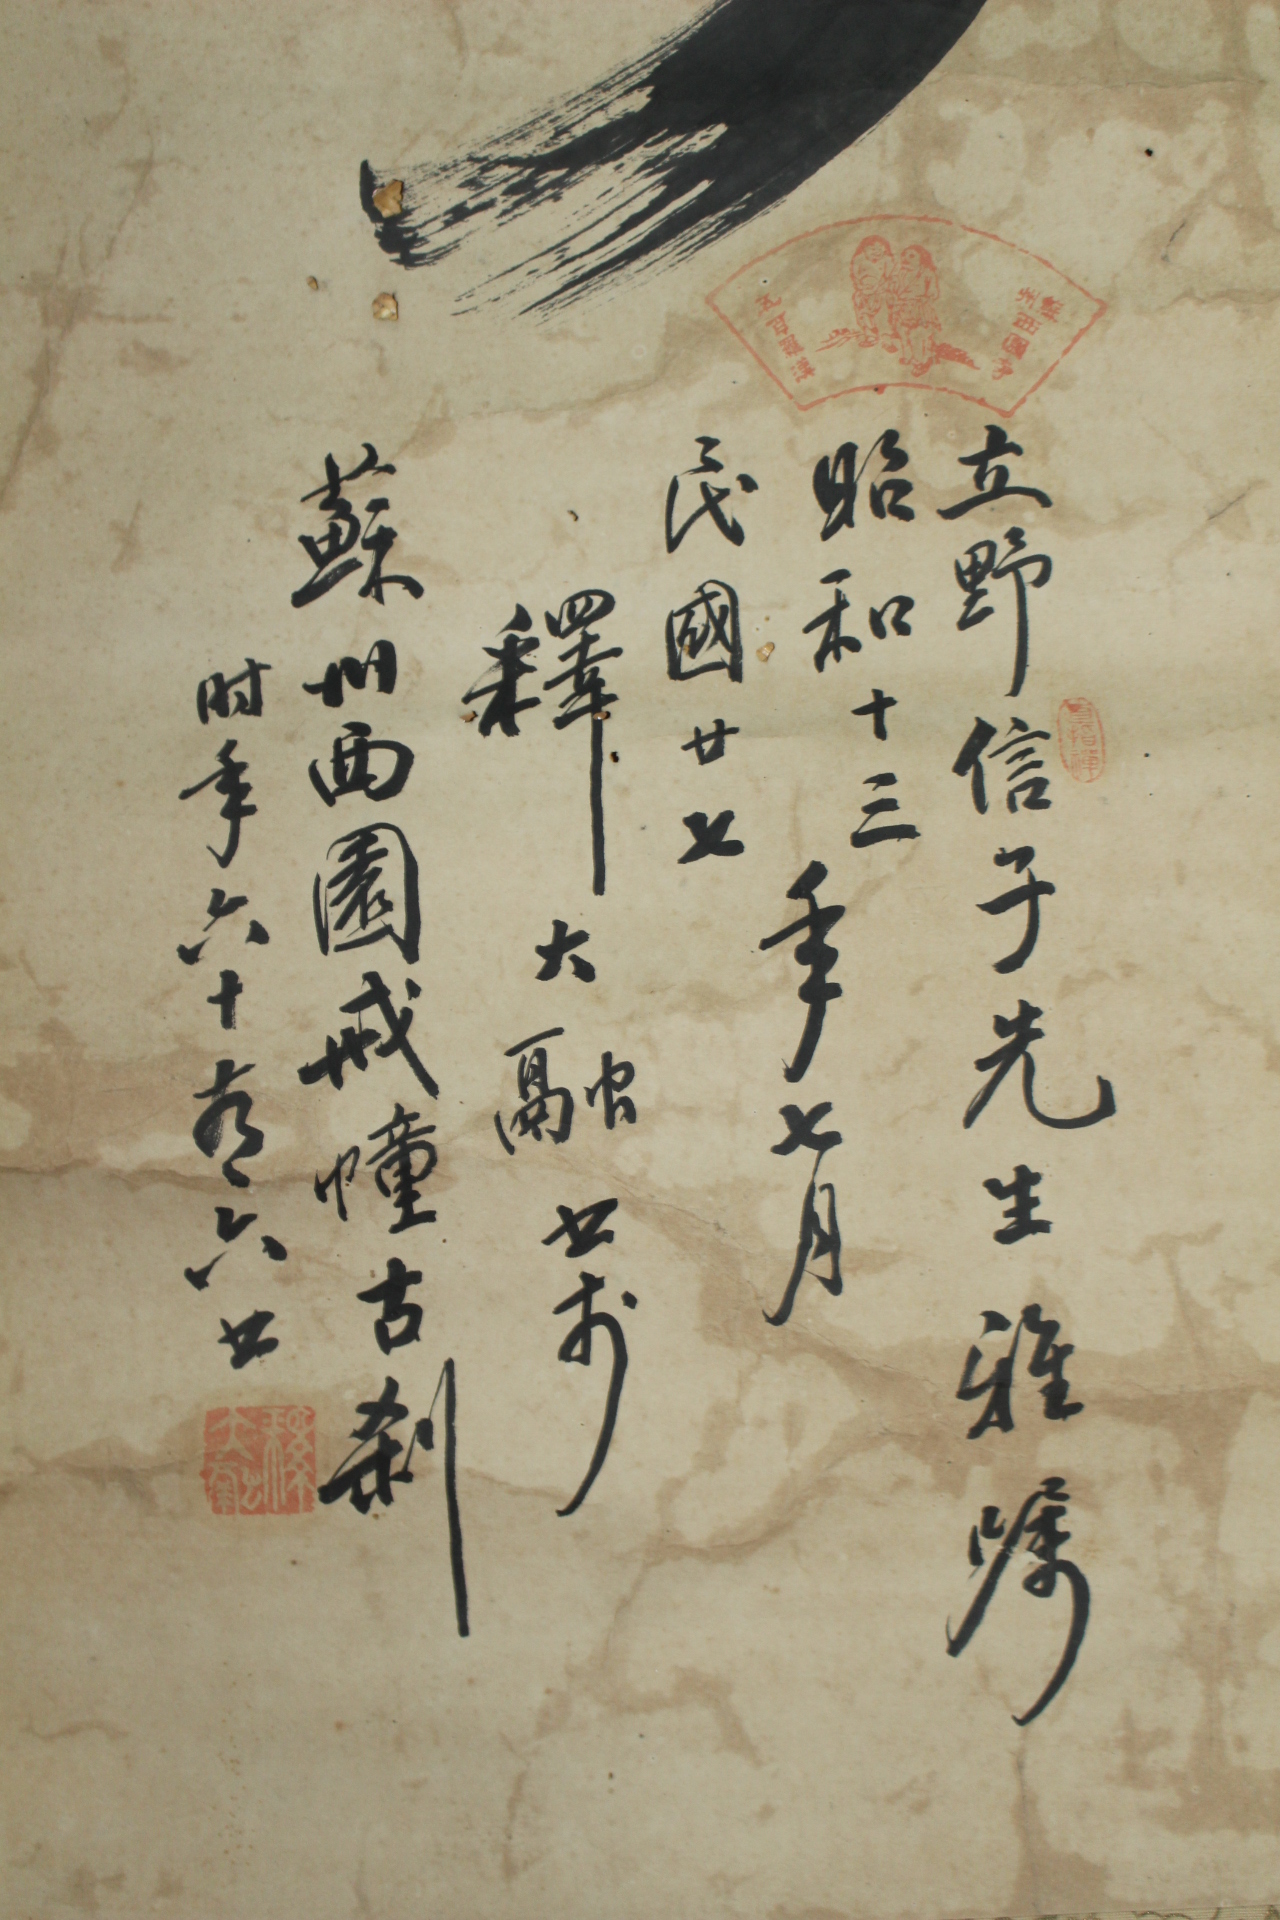 蘇州西園寺
五百羅漢
立野信子先生雅嘱
昭和十三
民國廿七
年七月
釋大融廿
蘇州西園戒幢古刹
时年六十有六廿
釋大